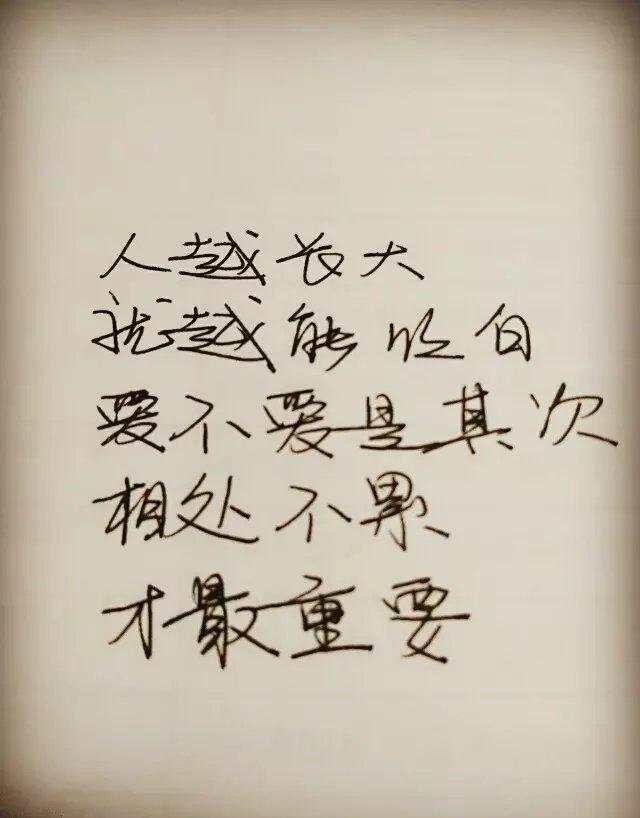 人越长大
就越能明白
爱不爱是其次
相处不累
才最重要